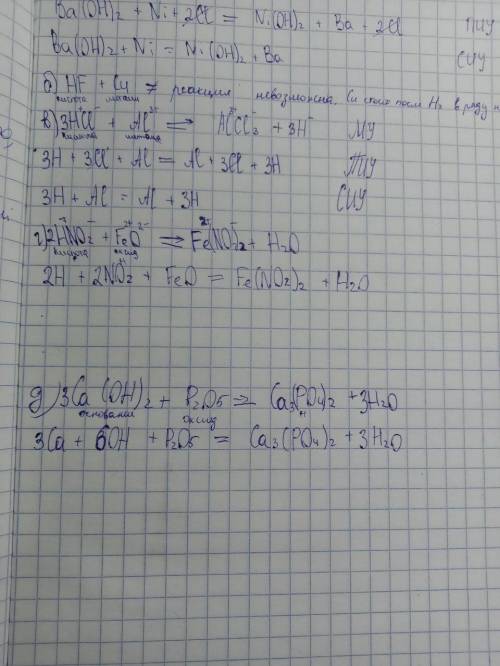 Ba(OH)₂ + Ni + 2Cl = Ni(OH)₂ + Ba + 2Cl ПИУ
Ba(OH)₂ + Ni = Ni(OH)₂ + Ba СИУ
б) HF + Cu ≠ реакция невозможна, Cu стоит посл H₂ в ряду
кислота металл
в) 3HCl + Al ⇌ AlCl₃ + 3H МУ
кислота металл
3H + 3Cl + Al = Al + 3Cl + 3H ПИУ
3H + Al = Al + 3H СИУ
г) 2HNO₂ + FeO ⇌ Fe(NO₂)₂ + H₂O
кислота оксид
2H + 2NO₂ + FeO = Fe(NO₂)₂ + H₂O
д) 3Ca(OH)₂ + P₂O₅ = Ca₃(PO₄)₂ + 3H₂O
основание оксид
3Ca + 6OH + P₂O₅ = Ca₃(PO₄)₂ + 3H₂O